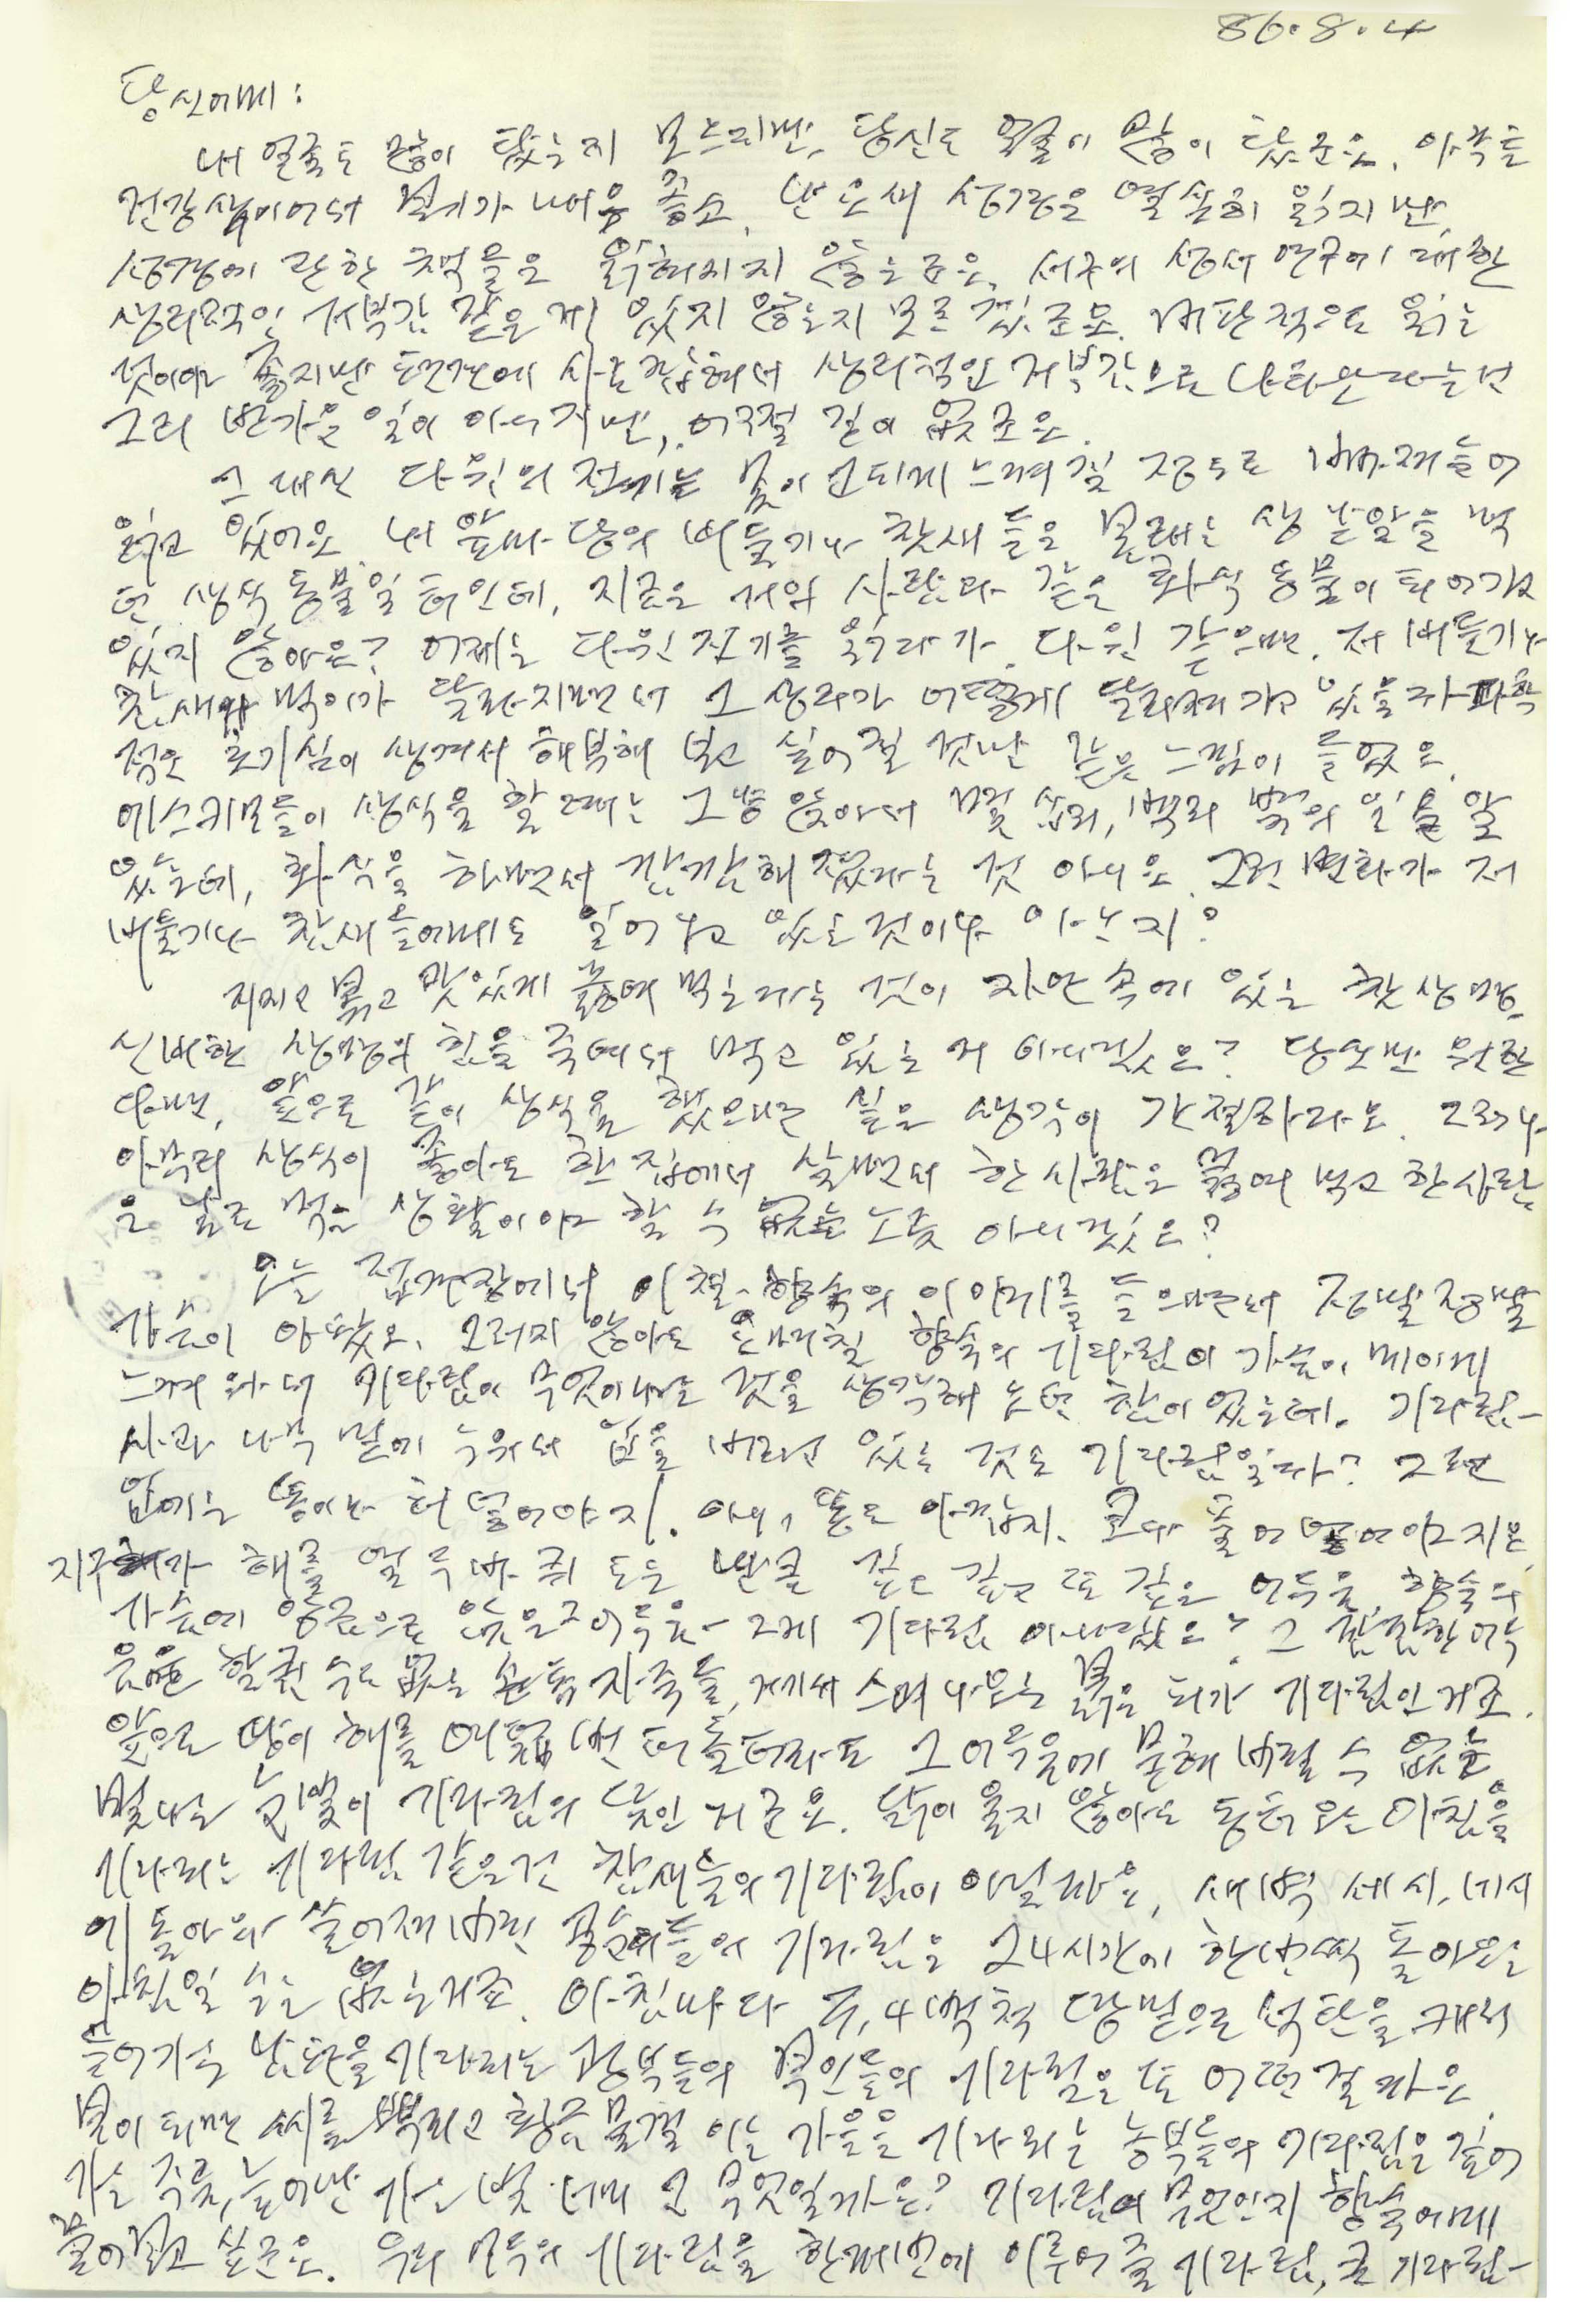 86. 8. 4
당신에게:
내 얼굴도 많이 탔는지 모르지만, 당신도 얼굴이 많이 탔군요. 아주 들
건강색이어서 보기가 너무 좋소. 난 요새 성경은 열심히 읽지만,
성경에 관한 책들은 읽혀지지 않는군요. 서구의 성서 연구에 대한
생리적인 거부감 같은 게 있지 않는지 모르겠군요. 비판적으로 읽는
것이야 좋지만 편견에 사로잡혀서 생리적인 거부감으로 나타난다는 건
그리 반가운 일이 아니지만, 어쩔 길이 없군요.
그 대신 다윈의 전기는 몸이 오싹하게 느껴질 정도로 빠져들어
읽고 있어요. 내 앞마당의 비둘기나 참새들은 본래는 생 낟알을 먹
던 생식 동물일 터인데, 지금은 거의 사람과 같은 화식 동물이 되어가고
있지 않아요? 어제는 다윈 전기를 읽다가, 다윈 같으면, 저 비둘기나
참새의 먹이가 달라지면서 그 생리가 어떻게 달라져 가고 있을까 과학
적인 호기심이 생겨서 해부해 보고 싶어질 것만 같은 느낌이 들었소.
에스키모들이 생식을 할 때는 그냥 앉아서 몇 십리, 백리 밖의 일을 알
았는데, 화식을 하면서 깜깜해졌다는 것 아니오. 그런 변화가 저
비둘기나 참새들에게도 일어나고 있는 것이나 아닌지?
지지고 볶고 맛있게 끓여 먹는다는 것이 자연 속에 있는 참 생명,
신비한 생명의 힘을 죽여서 먹고 있는 거 아니겠소? 당신만 원한
다면, 앞으로 같이 생식을 했으면 싶은 생각이 간절하다오. 그러나
아무리 생식이 좋아도 한 집에서 살면서 한 사람은 끓여 먹고 한 사람
은 날로 먹는 생활이야 할 수 없는 노릇 아니겠소?
오늘 접견장에서 이철·향숙의 이야기를 들으면서 정말 정말
가슴이 아팠소. 그러지 않아도 요 며칠 향숙의 기다림이 가슴이 메이게
느껴와서 기다림이 무엇이냐는 것을 생각해 보던 참이었는데. 기다림-
사과나무 밑에 누워서 입을 벌리고 있는 것도 기다림일까? 그런
입에는 똥이나 처 넣어야지. 아니, 똥도 아깝지. 코나 풀어 넣어야지요.
지구가 해를 열두 바퀴 도는 만큼 깊고 깊고 또 깊은 어두움, 향숙의
가슴에 앙금으로 앉은 그 어두움- 그게 기다림 아니겠소? 그 캄캄한 어두
움을 할퀸 수도 없는 손톱자국들, 거기서 스며나오는 붉은 피가 기다림인 거죠.
앞으로 땅이 해를 여덟 번 더 돌더라도 그 어두움에 묻혀버릴 수 없는
빛나는 눈빛이 기다림의 낮인 거군요. 닭이 울지 않아도 동터오는 아침을
기다리는 기다림 같은 건 참새들의 기다림이 아닐까요. 새벽 세시, 네시
에 돌아와 쓸어져버린 공순이들의 기다림은 24시간에 한번씩 돌아오는
아침일 수는 없는 거죠. 아침마다 3, 4백척 땅 밑으로 석탄을 캐러
들어가는 남편을 기다리는 광부들의 부인들의 기다림은 또 어떤 걸까요.
봄이 되면 씨를 뿌리고 황금물결 이는 가을을 기다리는 농부들의 기다림은 깊어
가는 주름, 늘어만 가는 빚 더미 그 무엇일까요? 기다림이 무엇인지 향숙에게
물어보고 싶군요. 우리 모두의 기다림을 한꺼번에 이루어 줄 기다림, 큰 기다림-